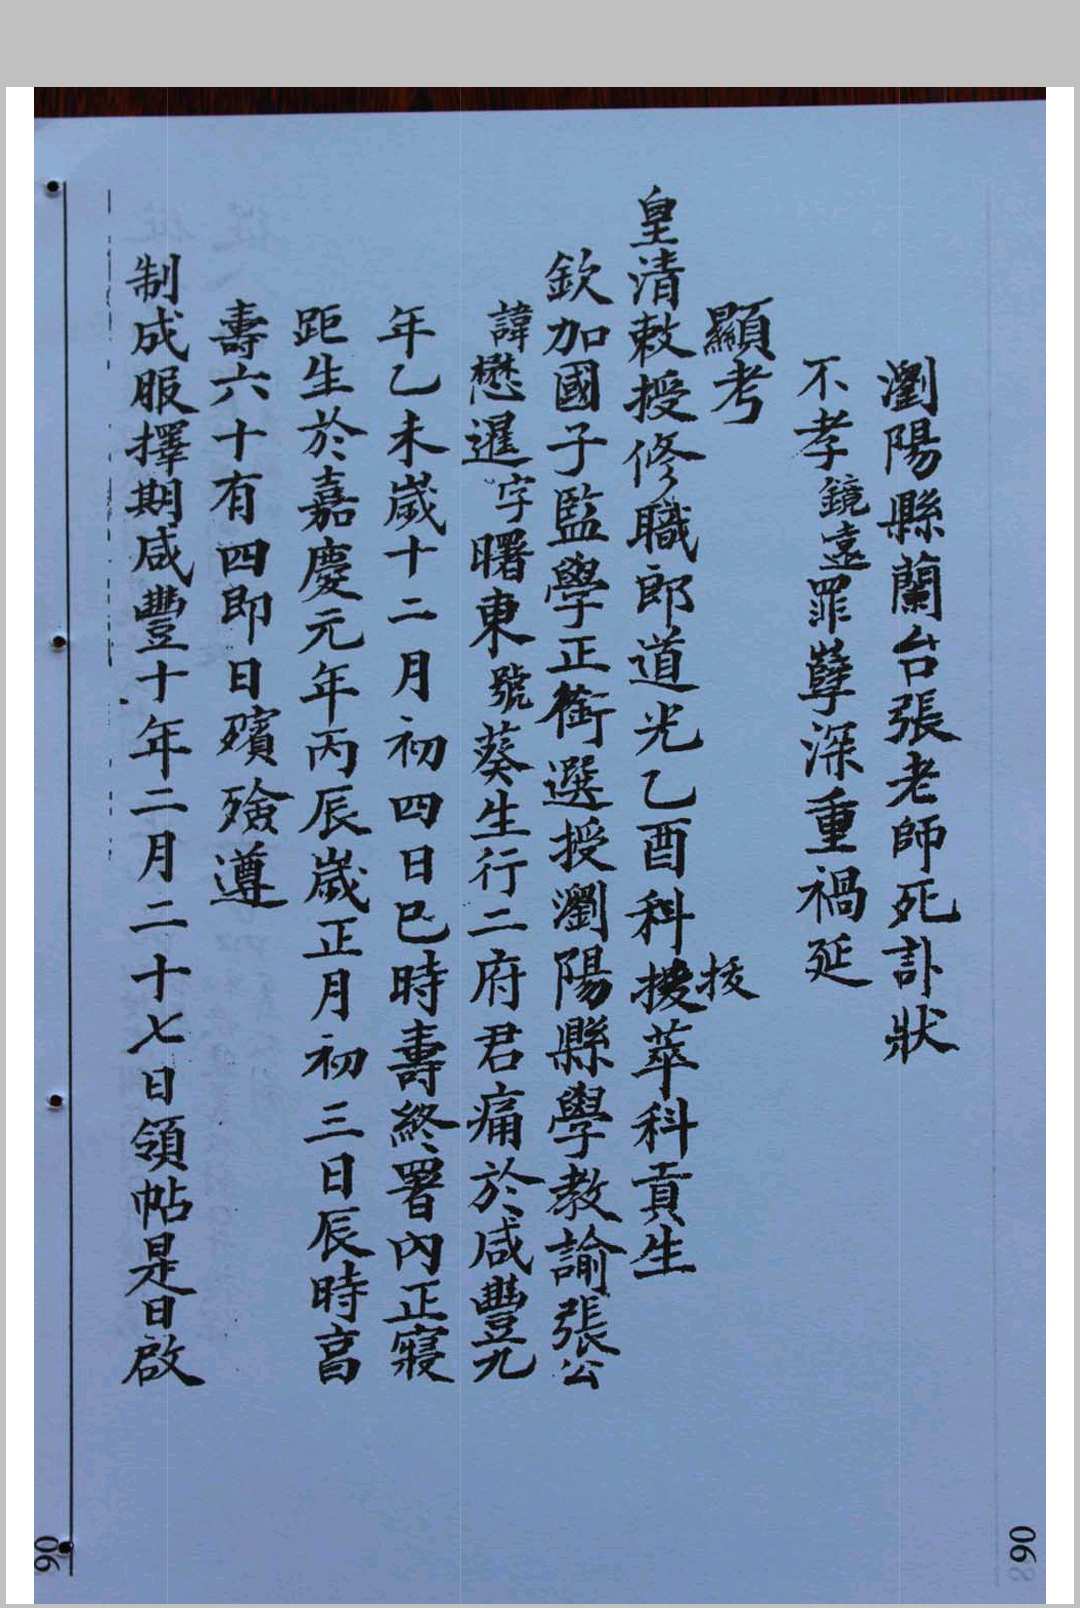 瀏陽縣蘭台張老師死訃狀
不孝鏡遠罪孽深重禍延
顯考
皇清敕授修職郎道光乙酉科拔萃科貢生
拔
欽加國子監學正銜選授瀏陽縣學教諭張公
諱懋暹字曙東號葵生行二府君痛於咸豐九
年乙未歲十二月初四日巳時壽終署內正寢
距生於嘉慶元年丙辰歲正月初三日辰時享
壽六十有四即日殯殮遵
制成服擇期咸豐十年二月二十七日領帖是日啟
90
90